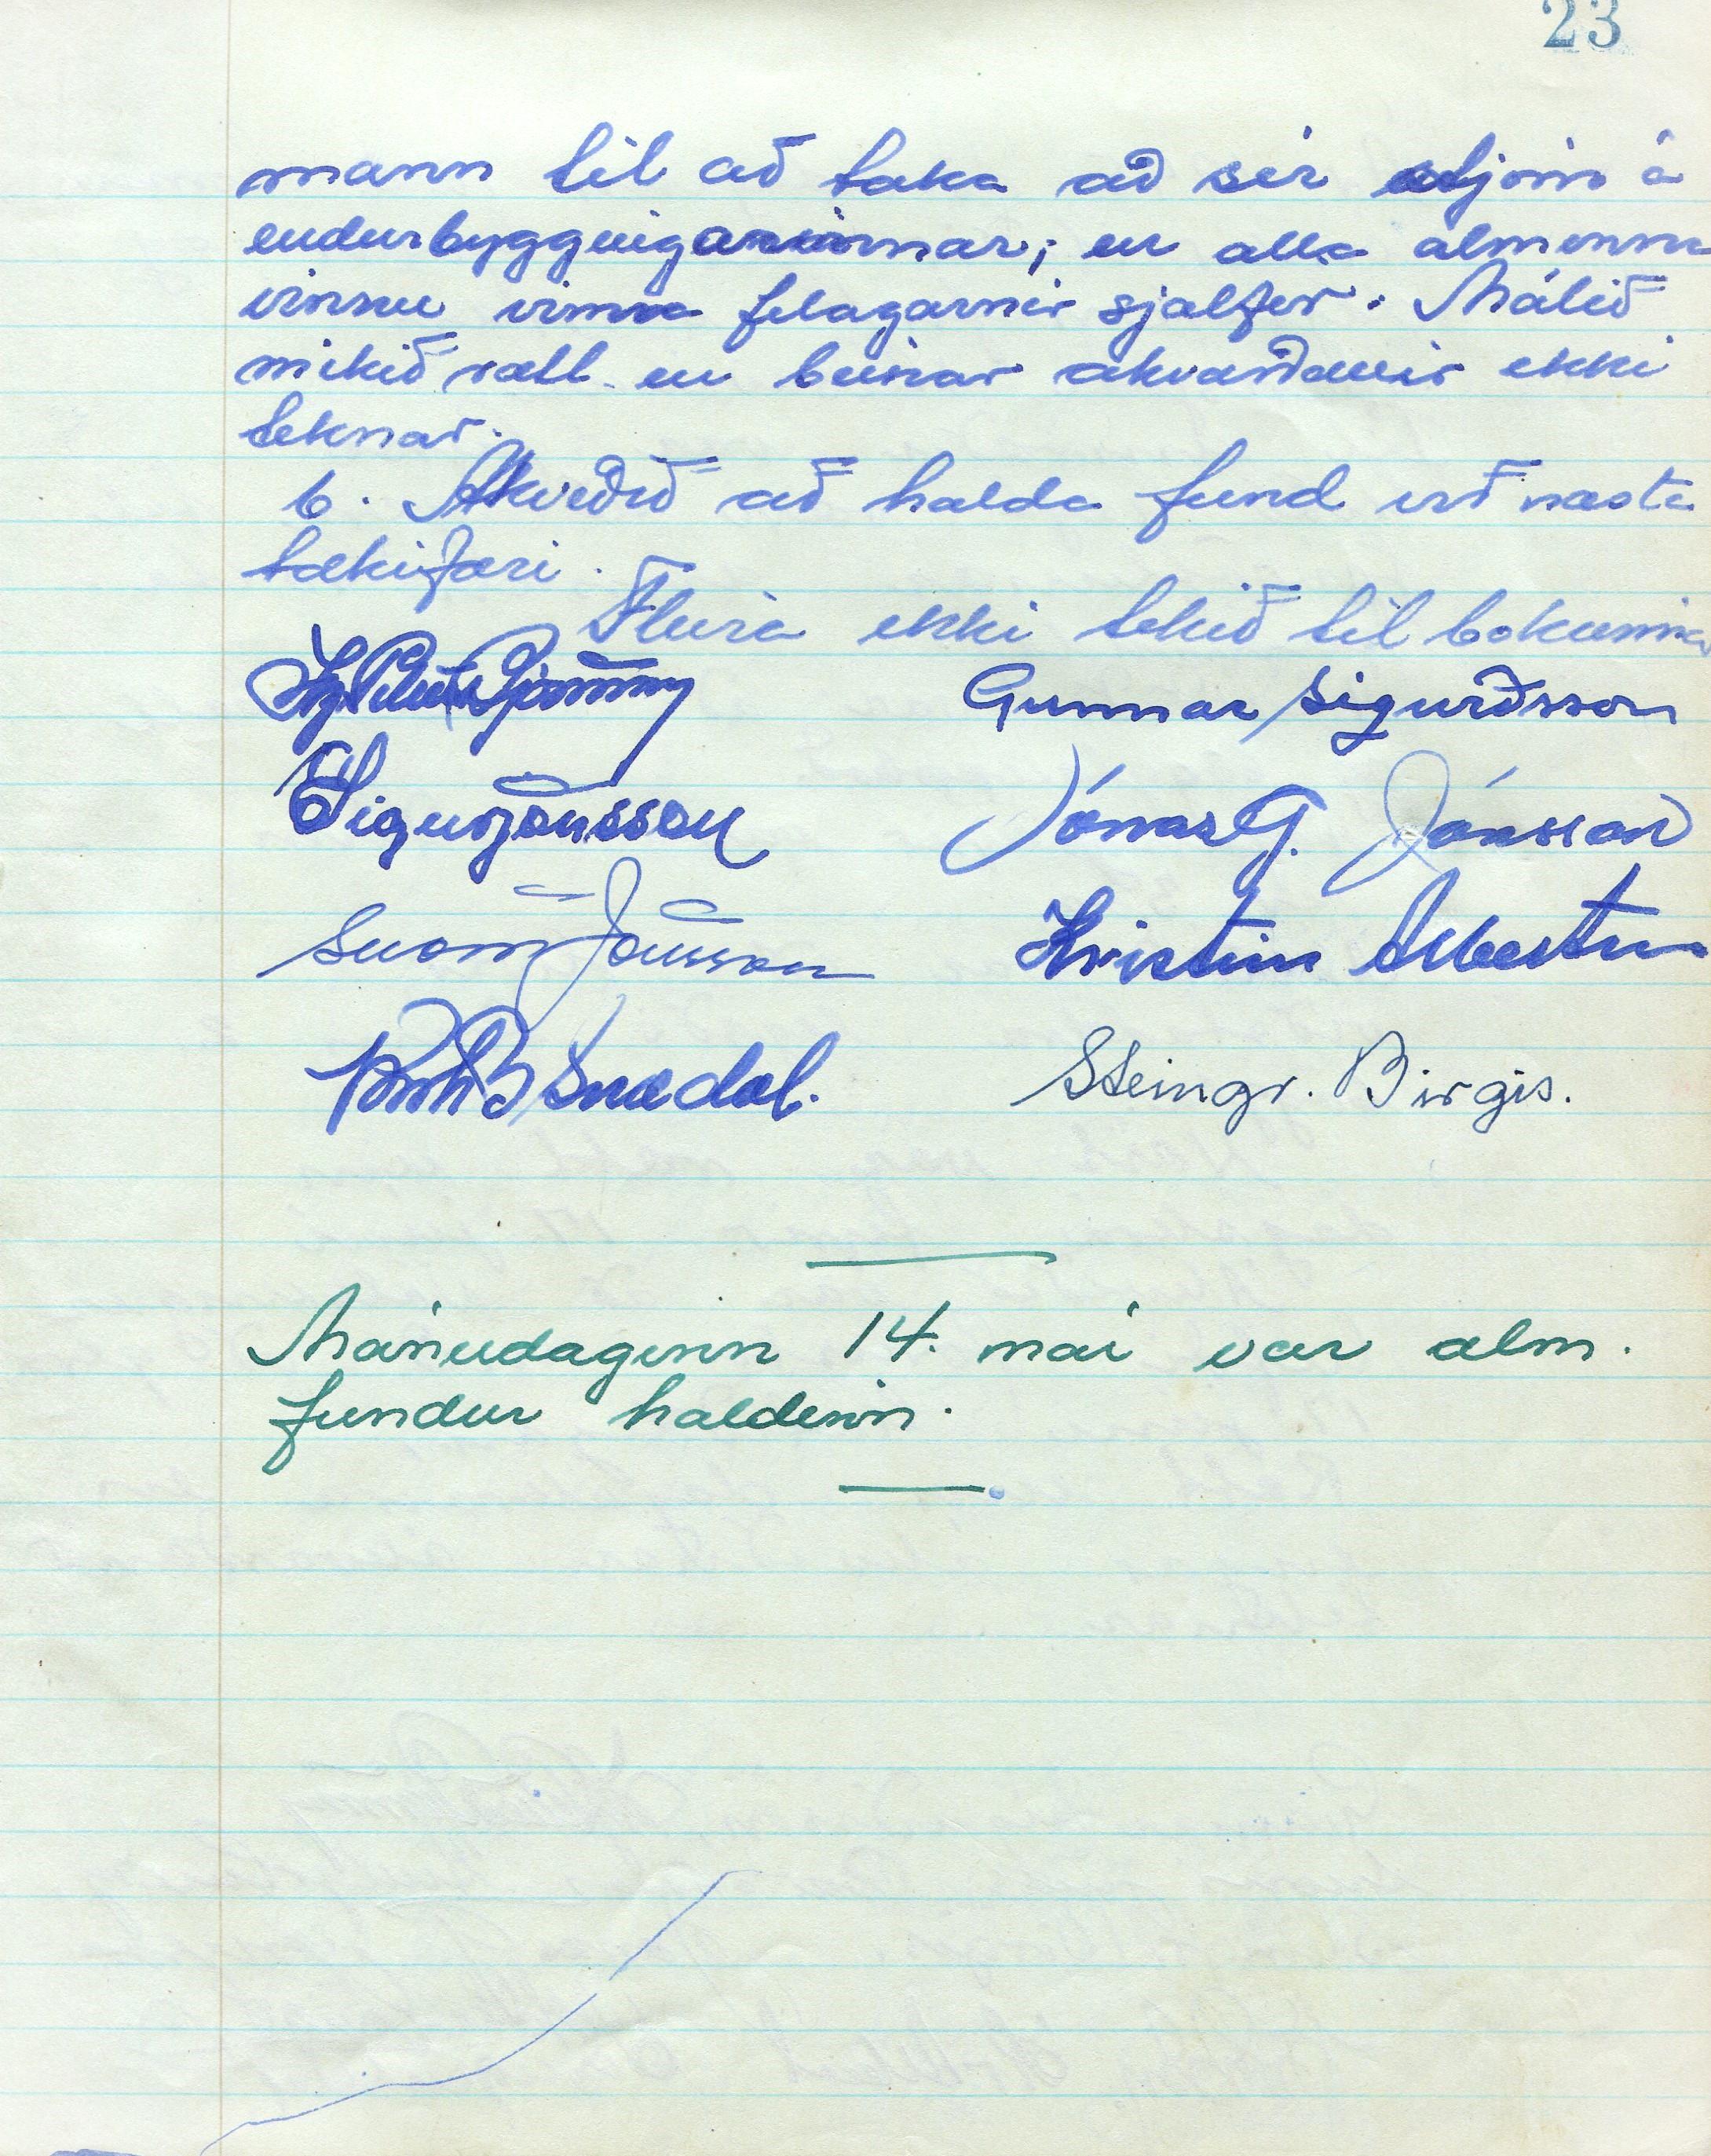 23
mann til að taka að sér stjórn á
endurbyggingunnar; en alla almenna
vinnu vinna felagarnir sjalfir. Málið
mikið rætt en beinar akvarðanir ekki
teknar.
6. Akveðið að halda fund við næsta
tækifæri.
Fleira ekki tekið til bokunnar
Gunnar Sigurðsson
Sigurjónsson
Jónas G. Jónsson
Jónsson
Kristinn Albertss
B Snædal.
Steingr. Birgis.
Mánudaginn 14. mai var alm.
fundur haldinn.